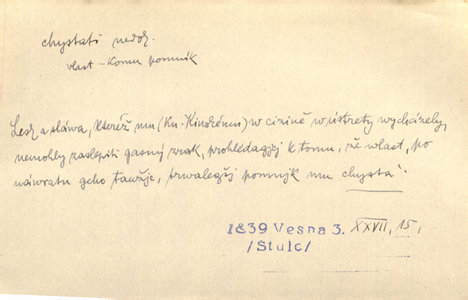 chystati nedok.
vlast - komu pomník
Lesk a sláwa, kteréž mu (Kn. Hindřénus) w cizině w ústrety wycházely,
nemohly zaslepiti gasný zrak, prohlédagjcj k tomu, že wlast, po
náwratu geho taužjc, trwalegšj pomnjk mu chystá.
1839 Vesna 3. XXVII, 15,
/Štulc/